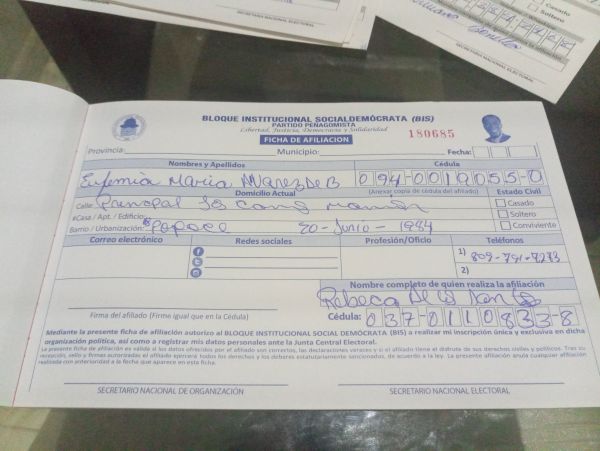 Casado
Soltero
SECRETARIO NACIONAL ELECTORAL
SECRETARIO NACIONAL ELECTORAL
BLOQUE INSTITUCIONAL SOCIALDEMÓCRATA (BIS)
PARTIDO PEÑAGOMISTA
Libertad, Justicia, Democracia y Solidaridad
FICHA DE AFILIACION
180685
Provincia: Municipio: Fecha:
Nombres y Apellidos Cédula
Eufemia Maria Alvarez De B 094-0019055-0
Domicilio Actual (Anexar copia de cédula del afiliado) Estado Civil
Calle: Principal Casado
#Casa / Apt. / Edificio: Soltero
Barrio / Urbanización: 20-Junio-1984 Conviviente
Correo electrónico Redes sociales Profesión/Oficio Teléfonos
1) 809-791-7273
2)
Nombre completo de quien realiza la afiliación
Rebeca De
Firma del afiliado (Firme igual que en la Cédula) Cédula: 037-0110833-8
Mediante la presente ficha de afiliación autorizo al BLOQUE INSTITUCIONAL SOCIAL DEMÓCRATA (BIS) a realizar mi inscripción única y exclusiva en dicha
organización política, así como a registrar mis datos personales ante la Junta Central Electoral.
La presente ficha de afiliación es válida si los datos ofrecidos por el afiliado son correctos, las declaraciones veraces y si el afiliado tiene el disfrute de sus derechos civiles y políticos. Tras su
recepción, sello y firmas autorizadas el afiliado ejercerá todos los derechos y los deberes estatutariamente sancionados, de acuerdo a la ley. La presente afiliación anula cualquier afiliación
realizada con anterioridad a la fecha que aparece en esta ficha.
SECRETARIO NACIONAL DE ORGANIZACIÓN SECRETARIO NACIONAL ELECTORAL